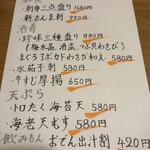 ・刺身三点盛り 1580円
・新さんま刺 990円
酒肴
・珍味三種盛り 880円
(梅水晶、酒盗、つぶ貝わさび)
・まぐろとアボカドわさび和え 580円
・水茄子刺 580円
・牛すじ厚揚 650円
天ぷら
・トロたく海苔天 580円
・海老天むす 580円
飲みもん おでん出汁割 420円